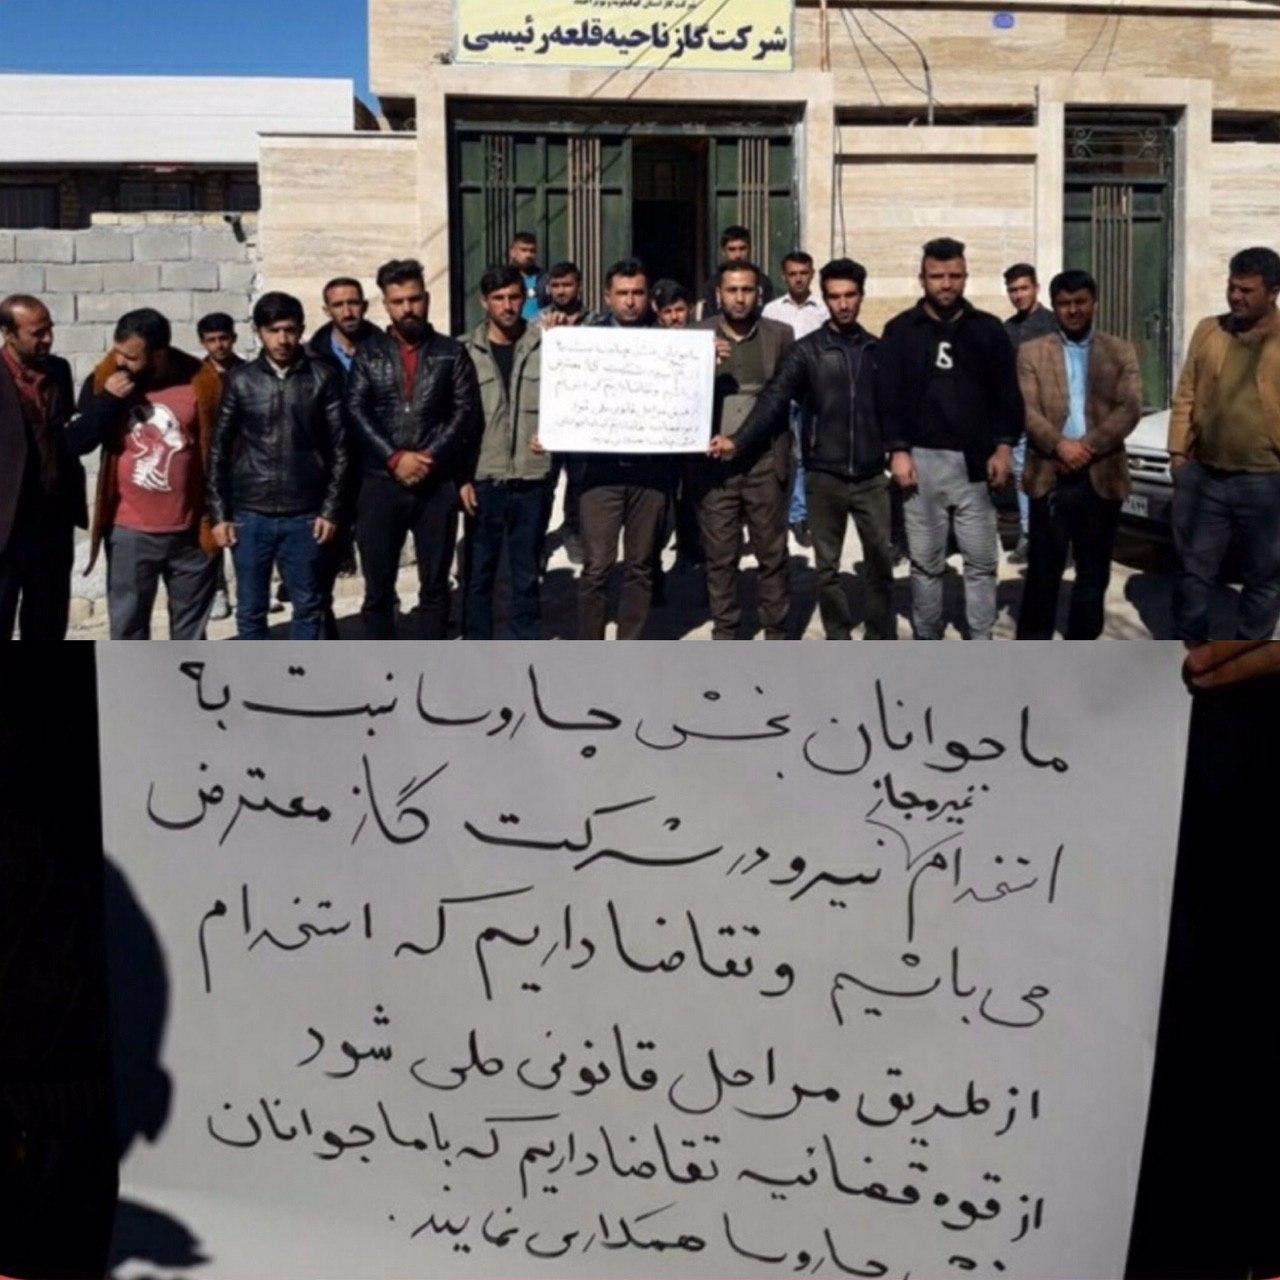 شرکت گاز استان کهگیلویه و بویراحمد
شرکت گاز ناحیه قلعه رئیسی
ما جوانان بخش چاروسا نسبت به
غیر مجاز
استخدام نیرو در شرکت گاز معترض
می باشیم و تقاضا داریم که استخدام
از طریق مراحل قانونی طی شود
از قوه قضائیه تقاضا داریم که با ما جوانان
بخش چاروسا همکاری نمایند.